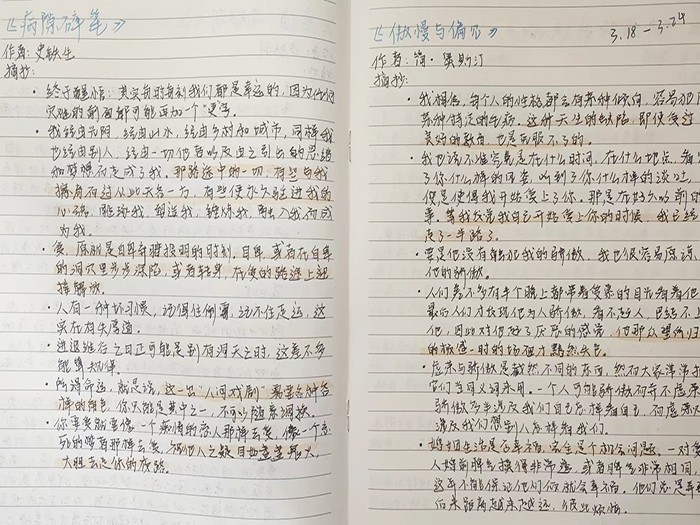 《病隙碎笔》
作者:史铁生
摘抄:
· 终于醒悟:其实每时每刻我们都是幸运的,因为任何
灾难的前面都可能再加一个“更”字。
· 我经由光阴,经由山水,经由乡村和城市,同样我
也经由别人,经由一切他者以及由之引出的思绪
和梦想而走成了我。那路途中的一切,有些与我
擦肩而过从此天各一方,有些便永久驻进我的
心魂,雕琢我,塑造我,锤炼我,融入我而成
为我。
· 爱,原就是自卑弃暗投明的时刻。自卑,或者在自卑
的洞穴里步步深陷,或者转身,在爱的路途上迎
接解放。
· 人有一种坏习惯,记得住倒霉,记不住走运,这
实在有失厚道。
· 进退维谷之日正可能是别有洞天之时,这差不多
能算规律。
· 所谓命运,就是说,这一出“人间戏剧”需要各种各
样的角色,你只能是其中之一,不可以随意调换。
· 你要爱就要像一个痴情的恋人那样去爱,像一个忘
死的梦者那样去爱,视他人之疑目如盏盏鬼火,
大胆去走你的夜路。
《傲慢与偏见》
3.18 — 3.24
作者:简·奥斯汀
摘抄:
· 我相信,每个人的性格都会有某种倾向,容易犯
某种特定的毛病,这种天生的缺陷,即使受过
良好的教育,也是克服不了的。
· 我也说不准究竟是在什么时间,在什么地点,看
了你什么样的风姿,听到了你什么样的谈吐,
便是使得我开始爱上了你。那是在好久以前的
事。等我发觉我自己开始爱上你的时候,我已经
走了一半路了。
· 要是他没有触犯我的骄傲,我也很容易原谅
他的骄傲。
· 人们差不多有半个晚上都带着爱慕的目光看着他
最后人们才发现他为人骄傲,看不起人,巴结不上
他,因此对他起了厌恶的感觉,他那众望所归
的极盛一时的场面才黯然失色。
· 虚荣与骄傲是截然不同的东西,然而大家常常
它们当同义词来用。一个人可能骄傲而并不虚荣
骄傲多半涉及我们自己怎样看自己,而虚荣
涉及我们想别人怎样看我们。
· 婚姻生活是否幸福,完全是个机会问题。一对
人婚前脾气摸得非常透,或者脾气非常相同,
这并不能保证他们俩就会幸福。他们总是弄
后来距离越来越远,彼此烦恼。